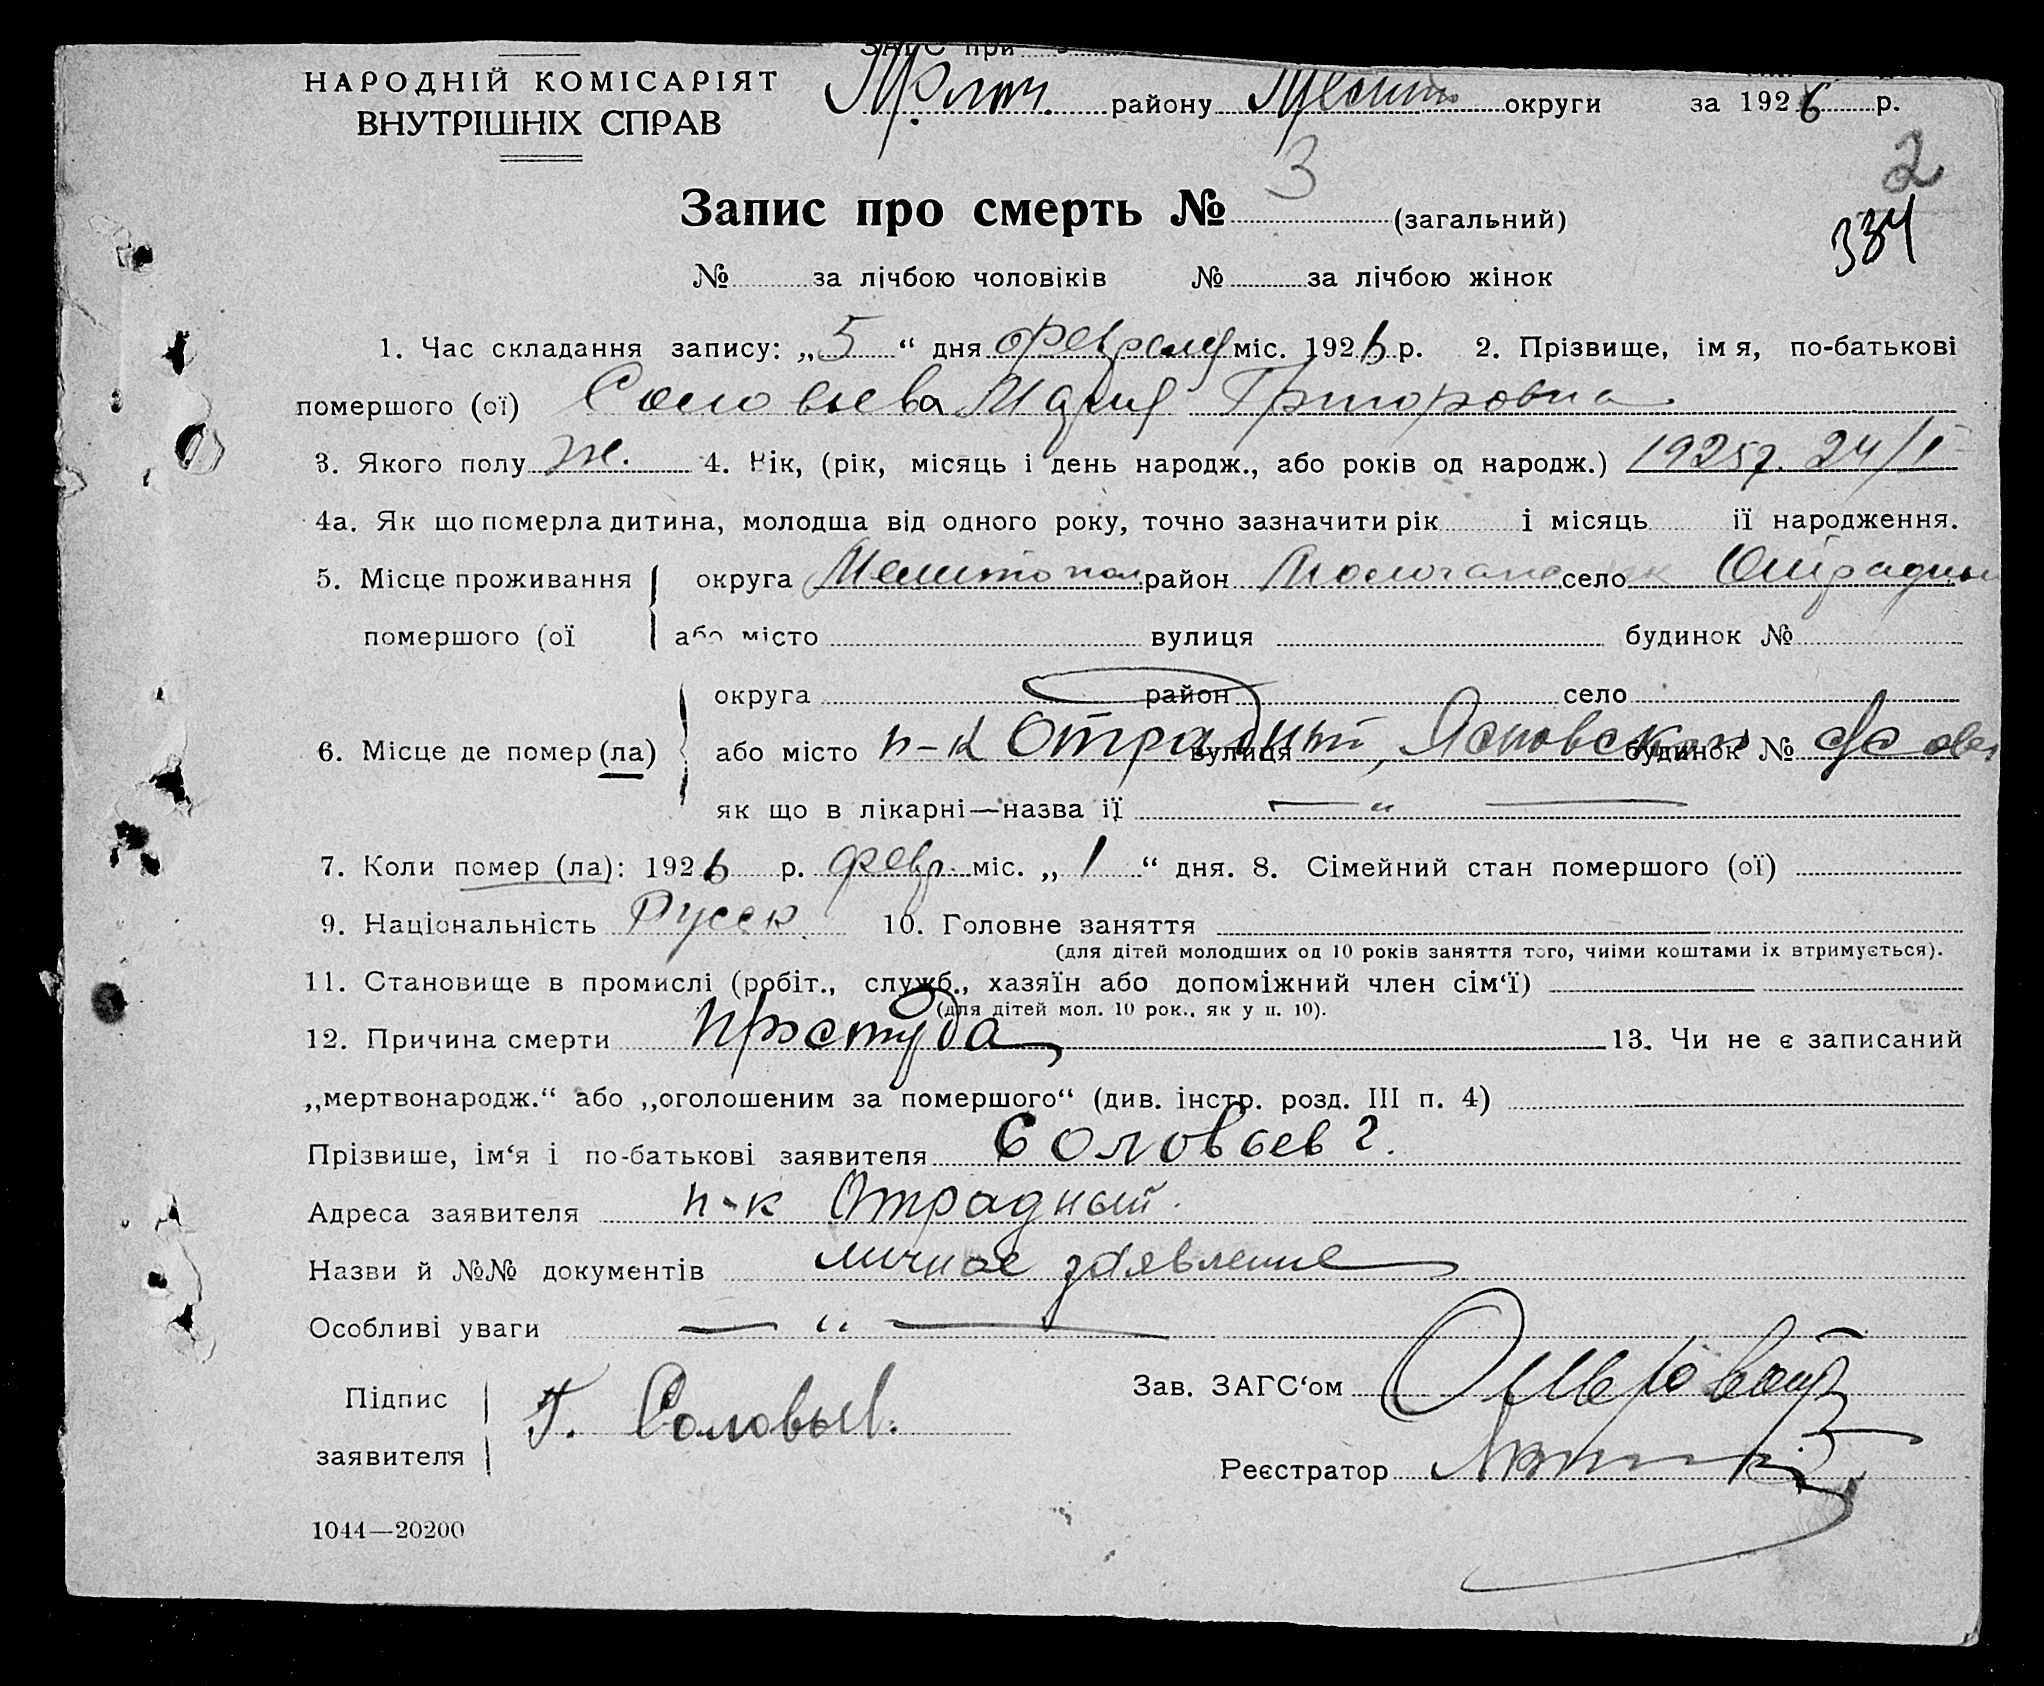 НАРОДНІЙ КОМІСАРІЯТ
ВНУТРІШНІХ СПРАВ
ЗАГС при
району Меліт округи за 1926 р.
2
Запис про смерть № 3 (загальний)
334
№ за лічбою чоловіків № за лічбою жінок
1. Час складання запису: „5“ дня февраля міс. 1926 р. 2. Прізвище, імя, по-батькові
помершого (ої) Соловьева Мария Григоровна
3. Якого полу ж. 4. Вік, (рік, місяць і день народж., або років од народж.) 1925 г. 24/I
4а. Як що померла дитина, молодша від одного року, точно зазначити рік і місяць її народження.
5. Місце проживання округа Мелитопол район Молочанск село Отрадный
помершого (ої або місто вулиця будинок №
округа район село
6. Місце де помер (ла) або місто п-к Отрадный, Ясновской вулиця будинок №
як що в лікарні—назва її — „ —
7. Коли помер (ла): 1926 р. февр. міс. „1“ дня. 8. Сімейний стан помершого (ої)
9. Національність Русск. 10. Головне заняття
(для дітей молодших од 10 років заняття того, чиїми коштами їх втримується).
11. Становище в промислі (робіт., служб., хазяїн або допоміжний член сім‘ї)
(для дітей мол. 10 рок., як у п. 10).
12. Причина смерти простуда 13. Чи не є записаний
„мертвонародж.“ або „оголошеним за помершого“ (див. інстр. розд. III п. 4)
Прізвише, ім‘я і по-батькові заявителя Соловьев Г.
Адреса заявителя п-к Отрадный.
Назви й №№ документів личное заявление
Особливі уваги — „ —
Підпис
заявителя Г. Соловьев.
Зав. ЗАГС‘ом
Реєстратор
1044—20200